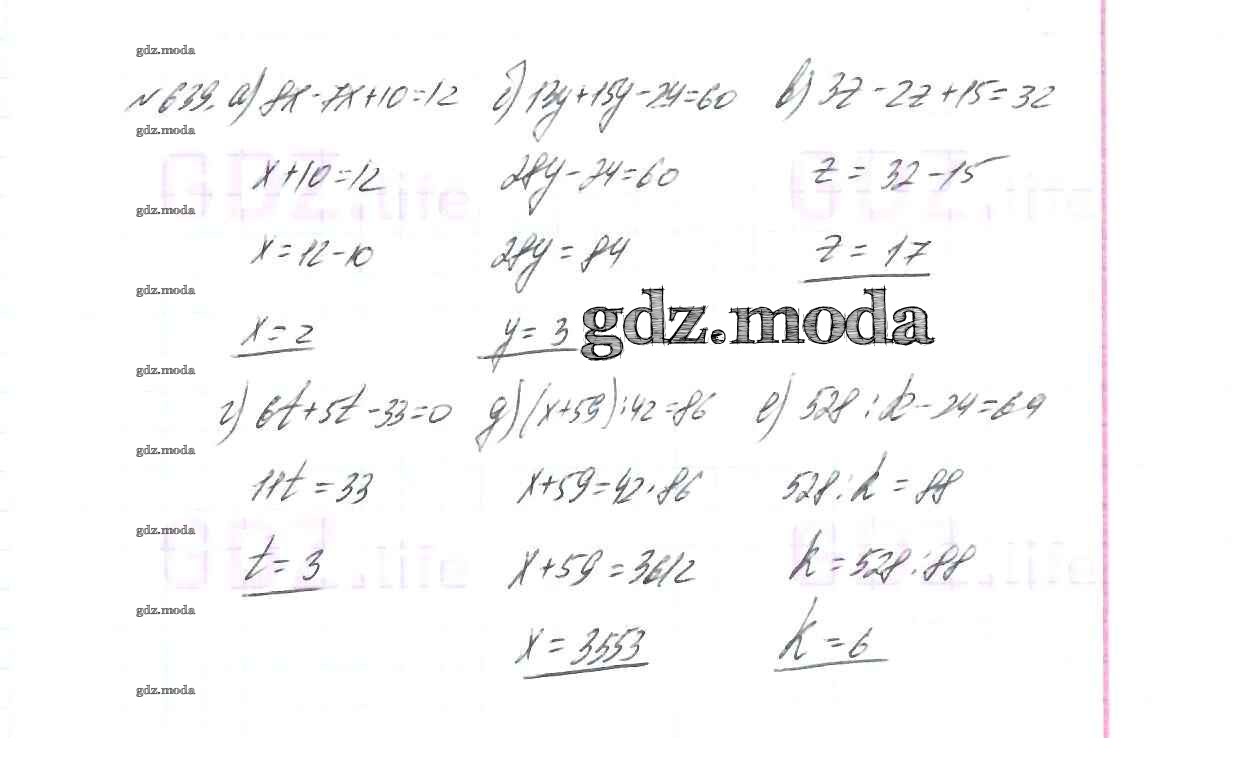 gdz.moda
№639. а) 8x-7x+10=12 б) 13y+15y-24=60 в) 3z-2z+15=32
gdz.moda
x+10=12 28y-24=60 z=32-15
GDZ.life GDZ.life
gdz.moda
x=12-10 28y=84 z=17
gdz.moda
gdz.moda
x=2 y=3
gdz.moda
г) 6t+5t-33=0 д) (x+59):42=86 е) 528:k-24=64
gdz.moda
11t=33 x+59=42·86 528:k=88
gdz.moda
GDZ.life GDZ.life
t=3 x+59=3612 k=528:88
gdz.moda
x=3553 k=6
gdz.moda